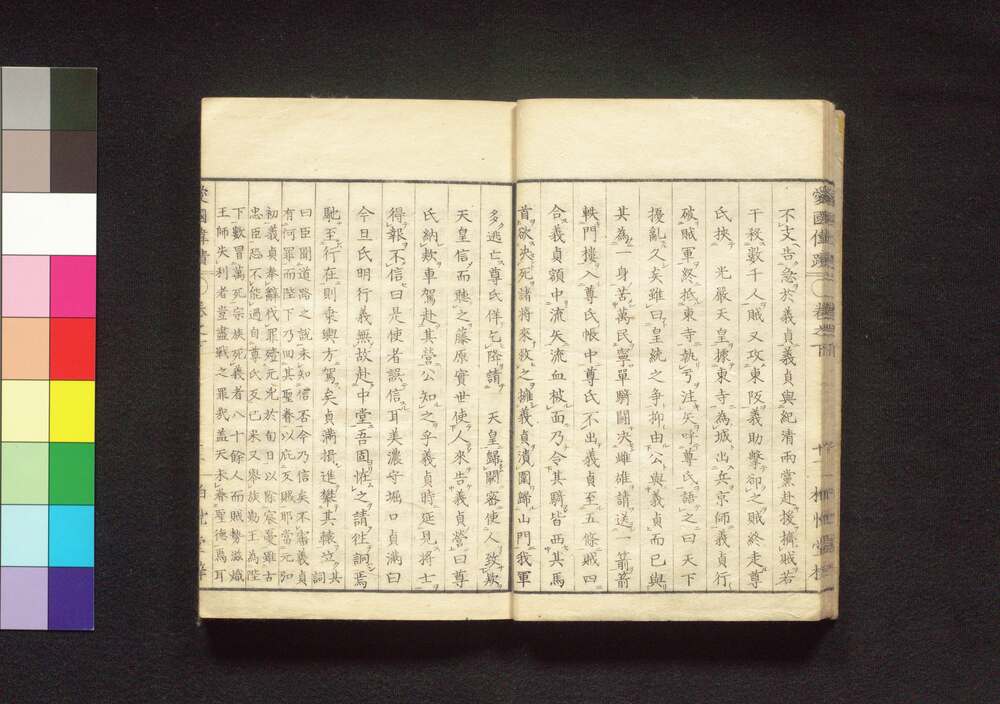 不支告急於義貞義貞與紀清兩黨赴援擠賊若
干殺數千人賊又攻東阪義助擊卻之賊終走尊
氏挾　光嚴天皇據東寺為城出兵京師義貞行
破賊軍終抵東寺執弓注矢呼尊氏語之曰天下
擾亂久矣雖曰皇統之爭抑由公與義貞而已與
其為一身苦萬民寧單騎鬪決雌雄請送一箭箭
軼門樓入尊氏帳中尊氏不出義貞至五條賊四
合義貞額中流矢流血被面乃令其騎皆西其馬
首欲決死諸將來救之擁義貞潰圍歸山門我軍
多逃亡尊氏佯乞降請　天皇歸闕密使人致欵
天皇信而聽之藤原實世使人來告義貞營曰尊
氏納欵車駕赴其營公知之乎義貞時延見將士
得報不信曰是使者誤信耳美濃守堀口貞滿曰
今旦氏明行義無故赴中堂吾固恠之請往詗焉
馳至行在則乘輿方駕矣貞滿揖進攀其轅泣其詞
曰臣聞道路之說未知信否今乃信矣不審義貞
有何罪而陛下乃回其聖眷以庇反賊耶當元弘
初義貞奉辭伐罪殪元兇於旬日以除宸憂雖古
忠臣恐不能過自尊氏反已來又舉族勤王為陛
下數冒萬死宗族死義者八十餘人而賊勢滋熾
王師失利者豈盡戰之罪哉蓋天未眷聖德焉耳
愛國偉績